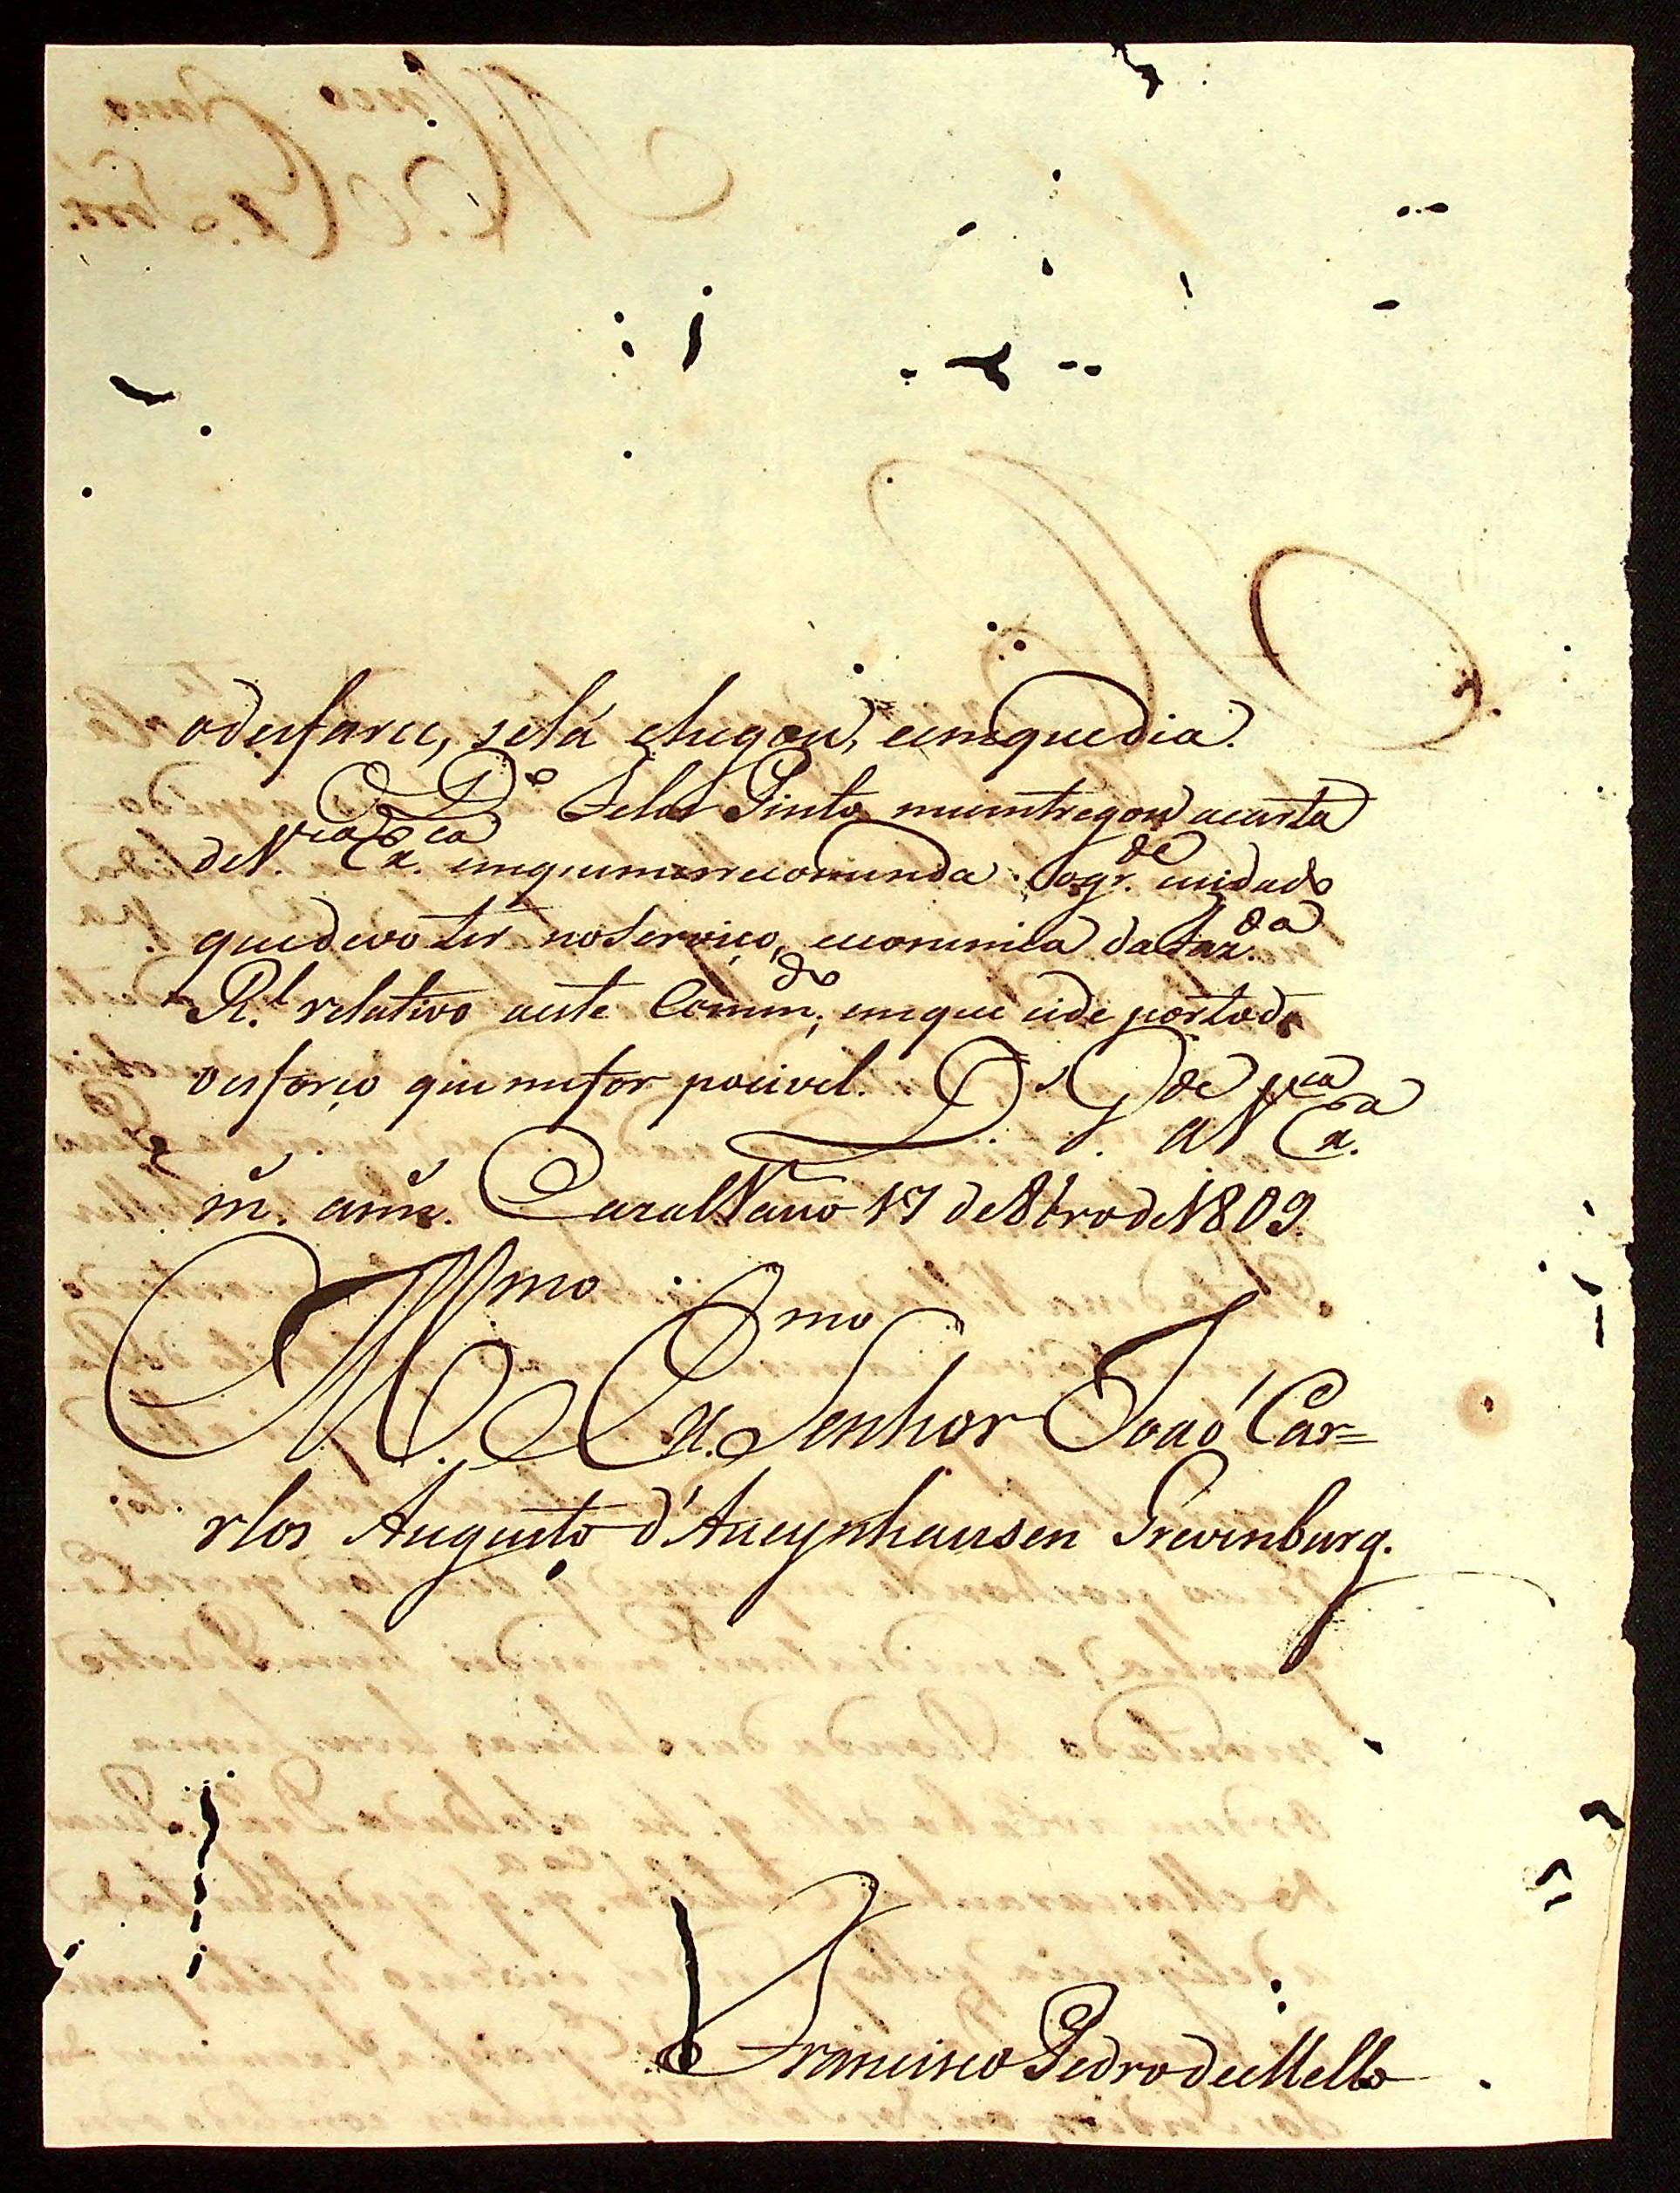 odesfarce, se lá chegou, eemquedia.
O D.º Selos Pinto meentregou acarta
deV.ca Ex.ca emquemerrecomenda ogr.de cuidado
quedevo ter noServiço, eeconomica daFaz.da
R.l relativo aeste Comm.do, emque eide portodo
oesforço quemefor pocivel. D.s G.de a V.ca Ex.a
m.s ann.s CazalVasco 17 de8brode1809.
Ill.mo Ex.mo Senhor Joaõ Car=
rlos Augusto d'Aueynhausen Grevenburg.
Francisco PedrodeMello